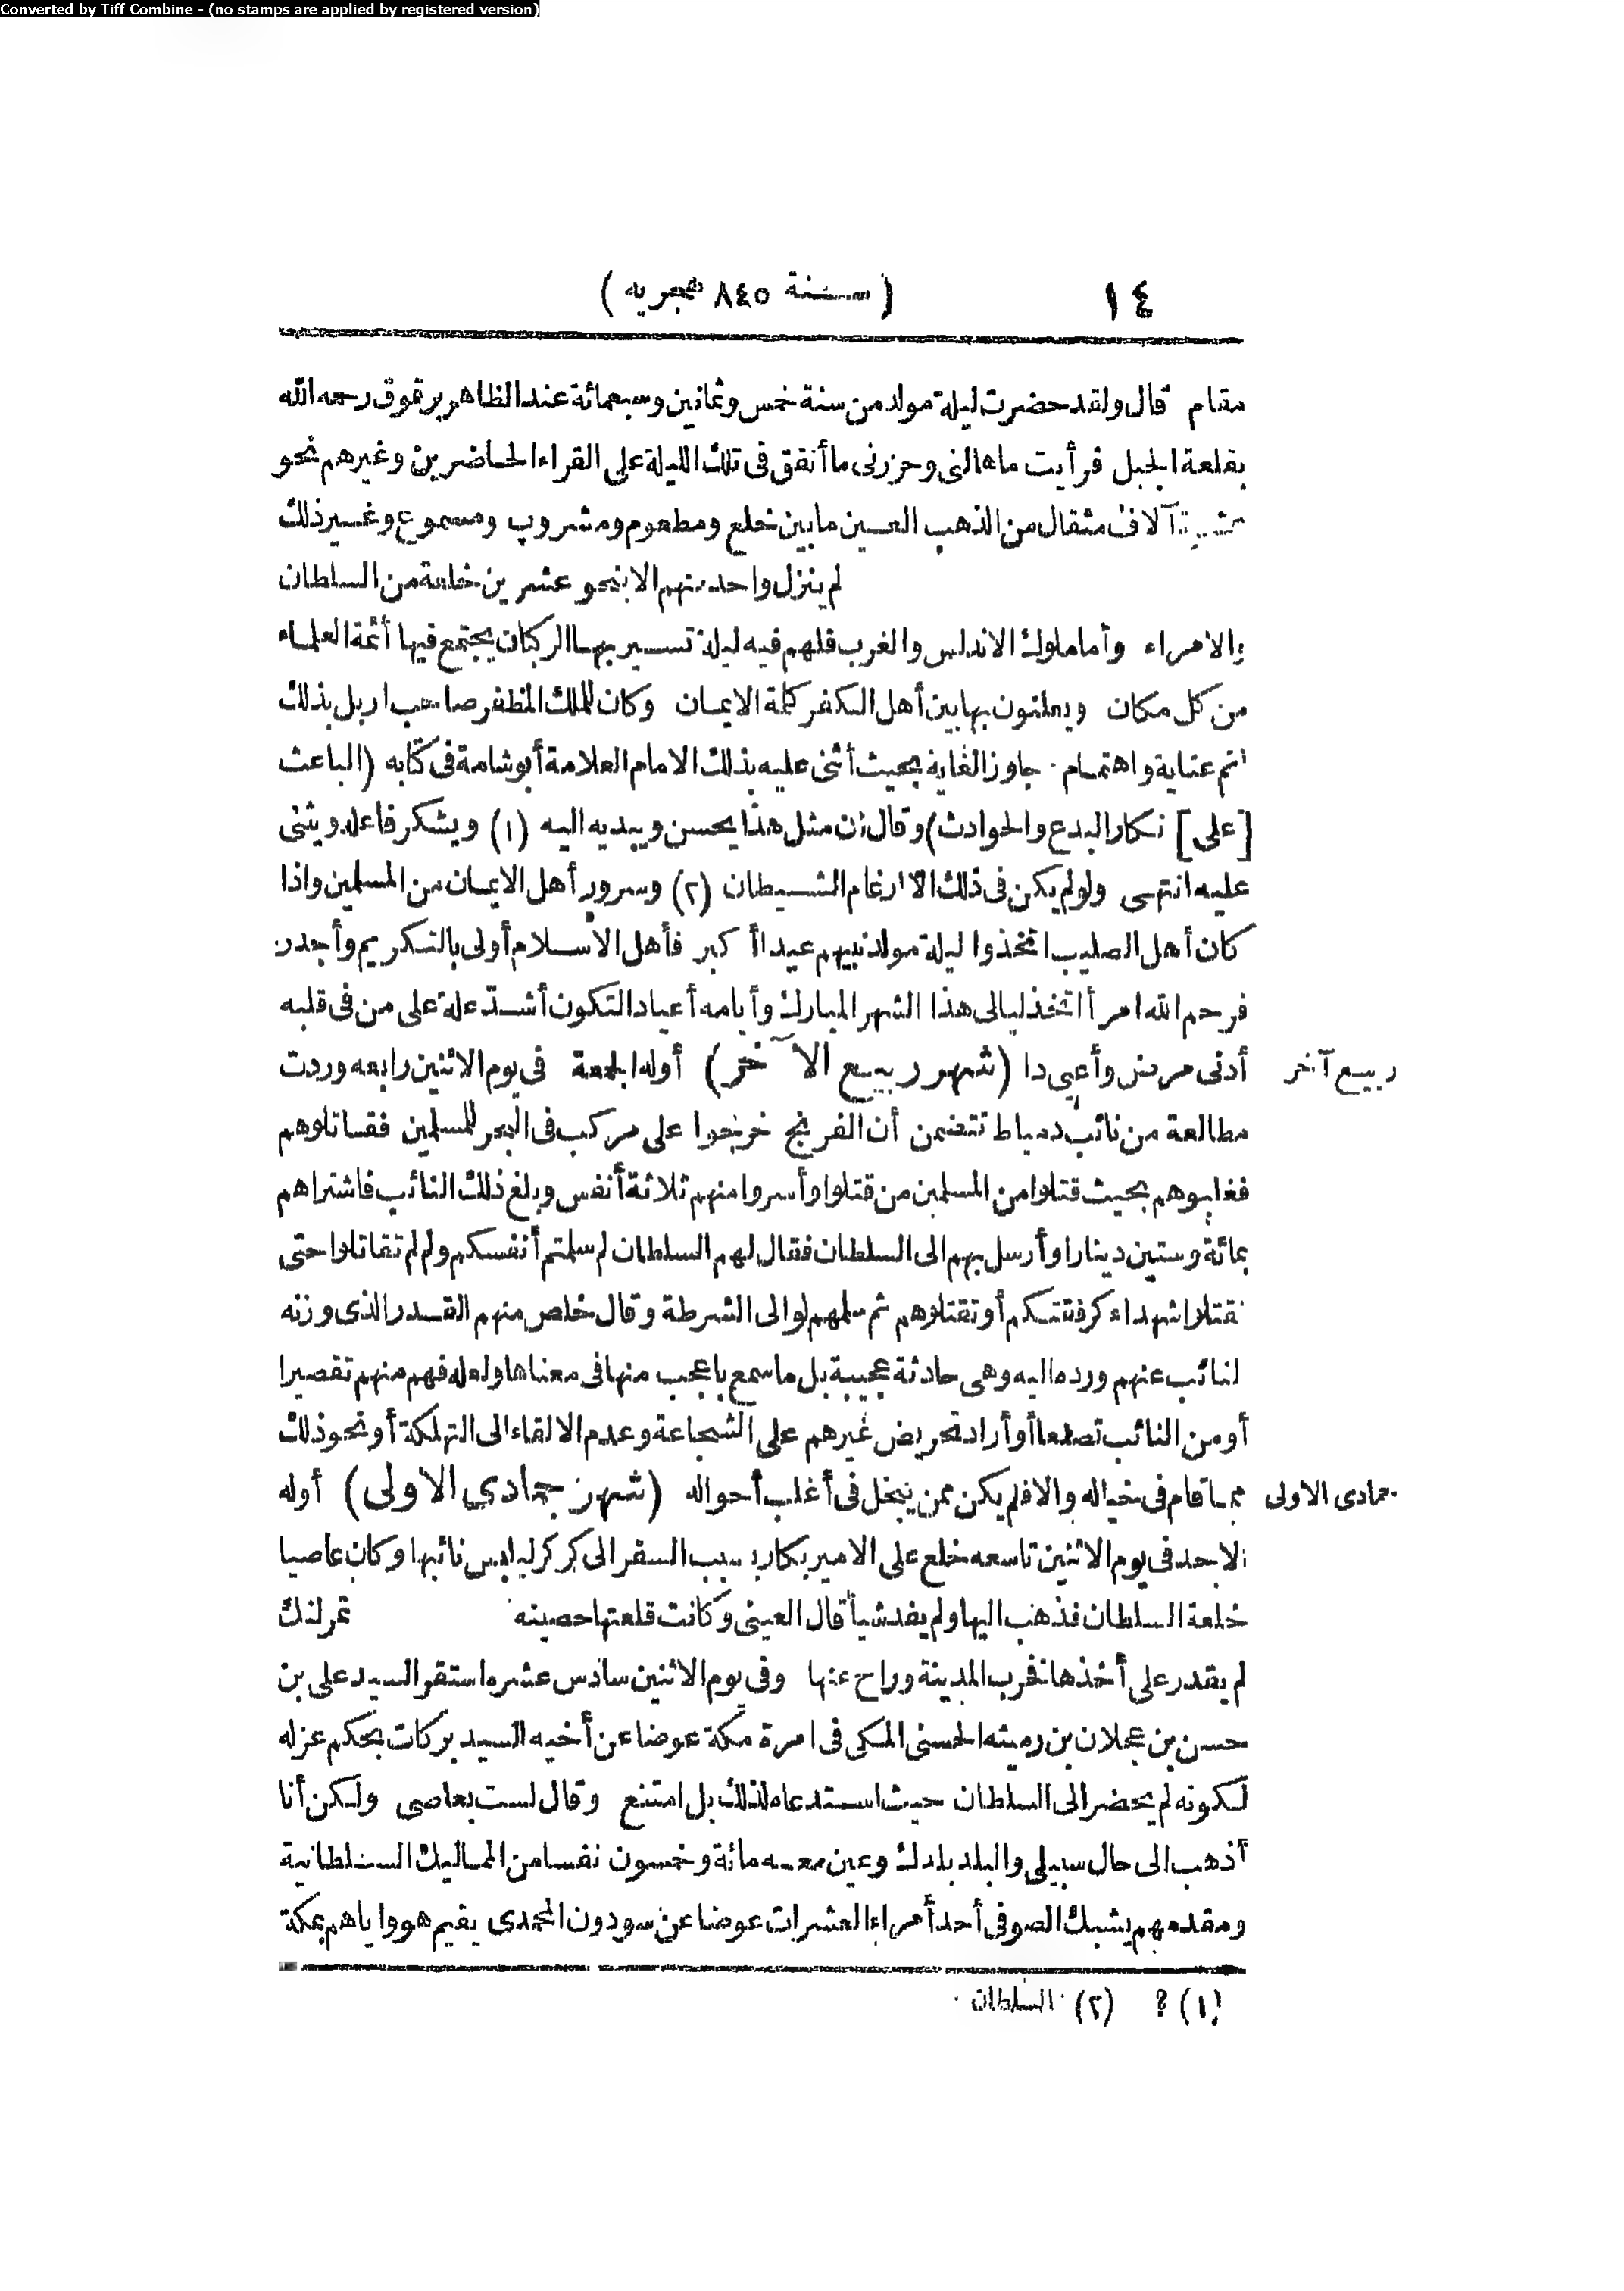 Converted by Tiff Combine - (no stamps are applied by registered version)
١٤ (سنة ٨٤٥ هجريه)
مقام قال ولقد حضرت ليلة مولد من سنة خمس وثمانين وسبعمائة عند الظاهر برقوق رحمه الله
بقلعة الجبل فرأيت ما هالنى وحزرنى ما أنفق فى تلك الليلة على القراء الحاضرين وغيرهم نحو
عشرة آلاف مثقال من الذهب العين ما بين خلع ومطعوم ومشروب ومسموع وغير ذلك
لم ينزل واحد منهم الا بنحو عشرين خلعة من السلطان
والامراء وأما ملوك الاندلس والغرب فلهم فيه ليلة تسير بها الركبان يجتمع فيها أئمة العلماء
من كل مكان ويعلنون بها بين أهل الكفر كلمة الايمان وكان للملك المظفر صاحب اربل بذلك
اتم عناية واهتمام جاوز الغاية بحيث أثنى عليه بذلك الامام العلامة أبو شامة فى كتابه (الباعث
[على] انكار البدع والحوادث) وقال ان مثل هذا يحسن ويبديه اليه (١) ويشكر فاعله ويثنى
عليه انتهى ولو لم يكن فى ذلك الا ارغام الشيطان (٢) وسرور أهل الايمان من المسلمين واذا
كان أهل الصليب اتخذوا ليلة مولد نبيهم عيدا أكبر فأهل الاسلام أولى بالتكريم وأجدر
فرحم الله امرأ اتخذ ليالى هذا الشهر المبارك وأيامه أعيادا لتكون أشد علة على من فى قلبه
أدنى مرض وأعيى دا (شهر ربيع الآخر) أوله الجمعة فى يوم الاثنين رابعه وردت
ربيع آخر
مطالعة من نائب دمياط تتضمن أن الفرنج خرجوا على مركب فى البحر للمسلمين فقاتلوهم
فغلبوهم بحيث قتلوا من المسلمين من قتلوا وأسروا منهم ثلاثة أنفس وبلغ ذلك النائب فاشتراهم
بمائة وستين دينارا وأرسل بهم الى السلطان فقال لهم السلطان لم سلمتم أنفسكم ولم لم تقاتلوا حتى
تقتلوا شهداء كرفقتكم أو تقتلوهم ثم سلمهم لوالى الشرطة وقال خلص منهم القدر الذى وزنه
لنائب عنهم ورده اليه وهى حادثة عجيبة بل ما سمع باعجب منها فى معناها ولعله فهم منهم تقصيرا
أو من النائب تصنعا أو أراد تحريض غيرهم على الشجاعة وعدم الالقاء الى التهلكة أو نحو ذلك
مما قام فى خياله والا فلم يكن ممن يبخل فى أغلب أحواله (شهر جمادى الاولى) أوله
جمادى الاولى
الاحد فى يوم الاثنين تاسعه خلع على الامير بكار بسبب السفر الى كركر ليلبس نائبها وكان عاصيا
خلعة السلطان فذهب اليها ولم يفد شيأ قال العينى وكانت قلعتها حصينه تمرلنك
لم يقدر على أخذها فخرب المدينة وراح عنها وفى يوم الاثنين سادس عشره استقر السيد على بن
حسن بن عجلان بن رميثه الحسنى المكى فى امرة مكة عوضا عن أخيه السيد بركات بحكم عزله
لكونه لم يحضر الى السلطان حيث استدعاه لذلك بل امتنع وقال لست بعاصى ولكن أنا
أذهب الى حال سبيلى والبلد بلدك وعين معه مائة وخمسون نفسا من المماليك السلطانية
ومقدمهم يشبك الصوفى أحد أمراء العشرات عوضا عن سودون المحمدى يقيم هو واياهم بمكة
(١) ؟ (٢) السلطان